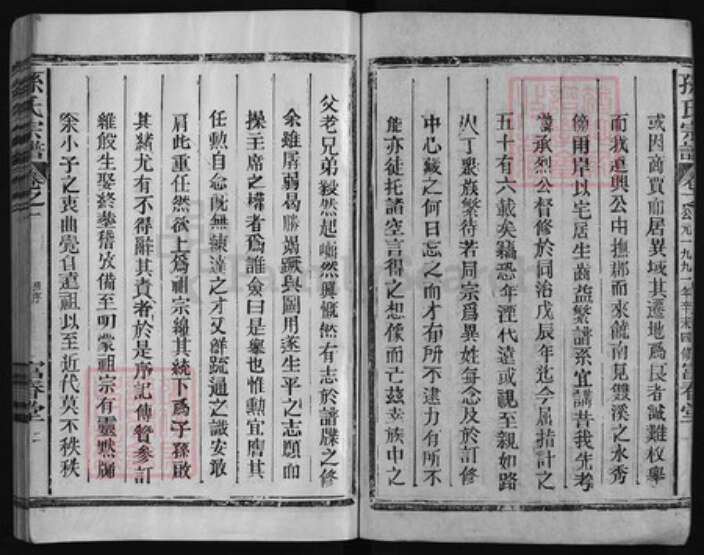 孫氏宗譜
卷
公元一九九一年辛未四修富春堂
或因商賈而居異域其遷地爲良者誠難枚舉
而我運興公由撫郡而來龍南見雙溪之水秀
兩岸以宅居生齒益繁譜系宜講昔我先考
承烈公督修於同治戊辰年迄今屈指計之
五十有六載矣竊恐年湮代遠或視至親如路
人丁眾族繁待若同宗爲異姓每念及於訂修
中心藏之何日忘之而才有所不逮力有所不
能亦徒托諸空言得之想像而已茲幸族中之
父老兄弟毅然起喟然興慨然有志於譜牒之修
余雖孱弱曷勝竭蹶與圖用遂生平之志願而
操主席之權者爲誰僉曰是舉也惟勳宜膺其
任勳自念既無練達之才又鮮疏通之識安敢
肩此重任然欲上爲祖宗綿其統下爲子孫啟
其緒尤有不得辭其責者於是序記傳贊參訂
維殷生娶終塟稽攷備至明蒙祖宗有靈默牖
余小子之衷曲覺自遠祖以至近代莫不秩秩
孫氏宗譜
卷之一
富春堂